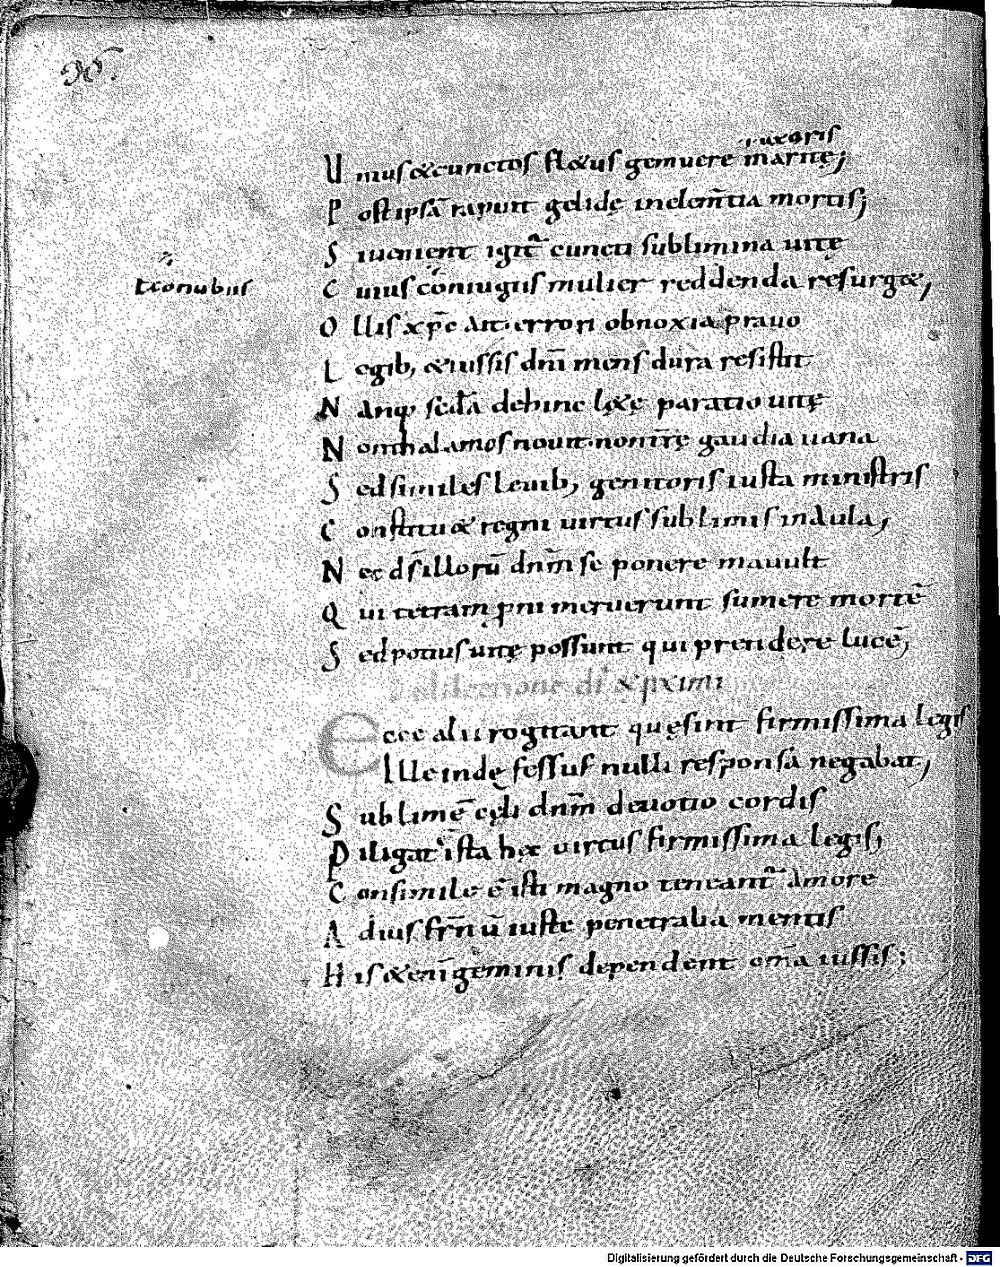 96.
uxoris
Unius & cunctos fl&us gemuere maritę;
Post ipsā rapuit gelidę inclem̄tia mortis;
Si uenient igit̄ cuncti sub limina uitę
t conubiis
Cuius coniugiis mulier reddenda resurg&;
Ollis xp̄c ait errori obnoxia prauo
Legib; & iussis dn̄i mens dura resistit
Nanq; sc̄dā dehinc l&ę paratio uitę
Non thalamos nouit non tr̄ę gaudia uana
Sed similes leuib; genitoris iusta ministris
Constitu& regni uirtus sublimis in aula;
Nec ds̄ illorū dn̄m se ponere mauult
Qui tetram pni meruerunt sumere mortē
Sed potius uitę possunt qui prendere lucē;
De dilectione di & pximi
Ecce alii rogitant quę sint firmissima legis
Ille indę fessus nulli responsa negabat;
Sublimē cęli dn̄m deuotio cordis
Diligat ista h&c uirtus firmissima legis;
Consimile ē isti magno teneant̄ amore
Adius fr̄m ū iuste penetralia mentis
His &eni geminis dependent om̄a iussis;
Digitalisierung gefördert durch die Deutsche Forschungsgemeinschaft - DFG